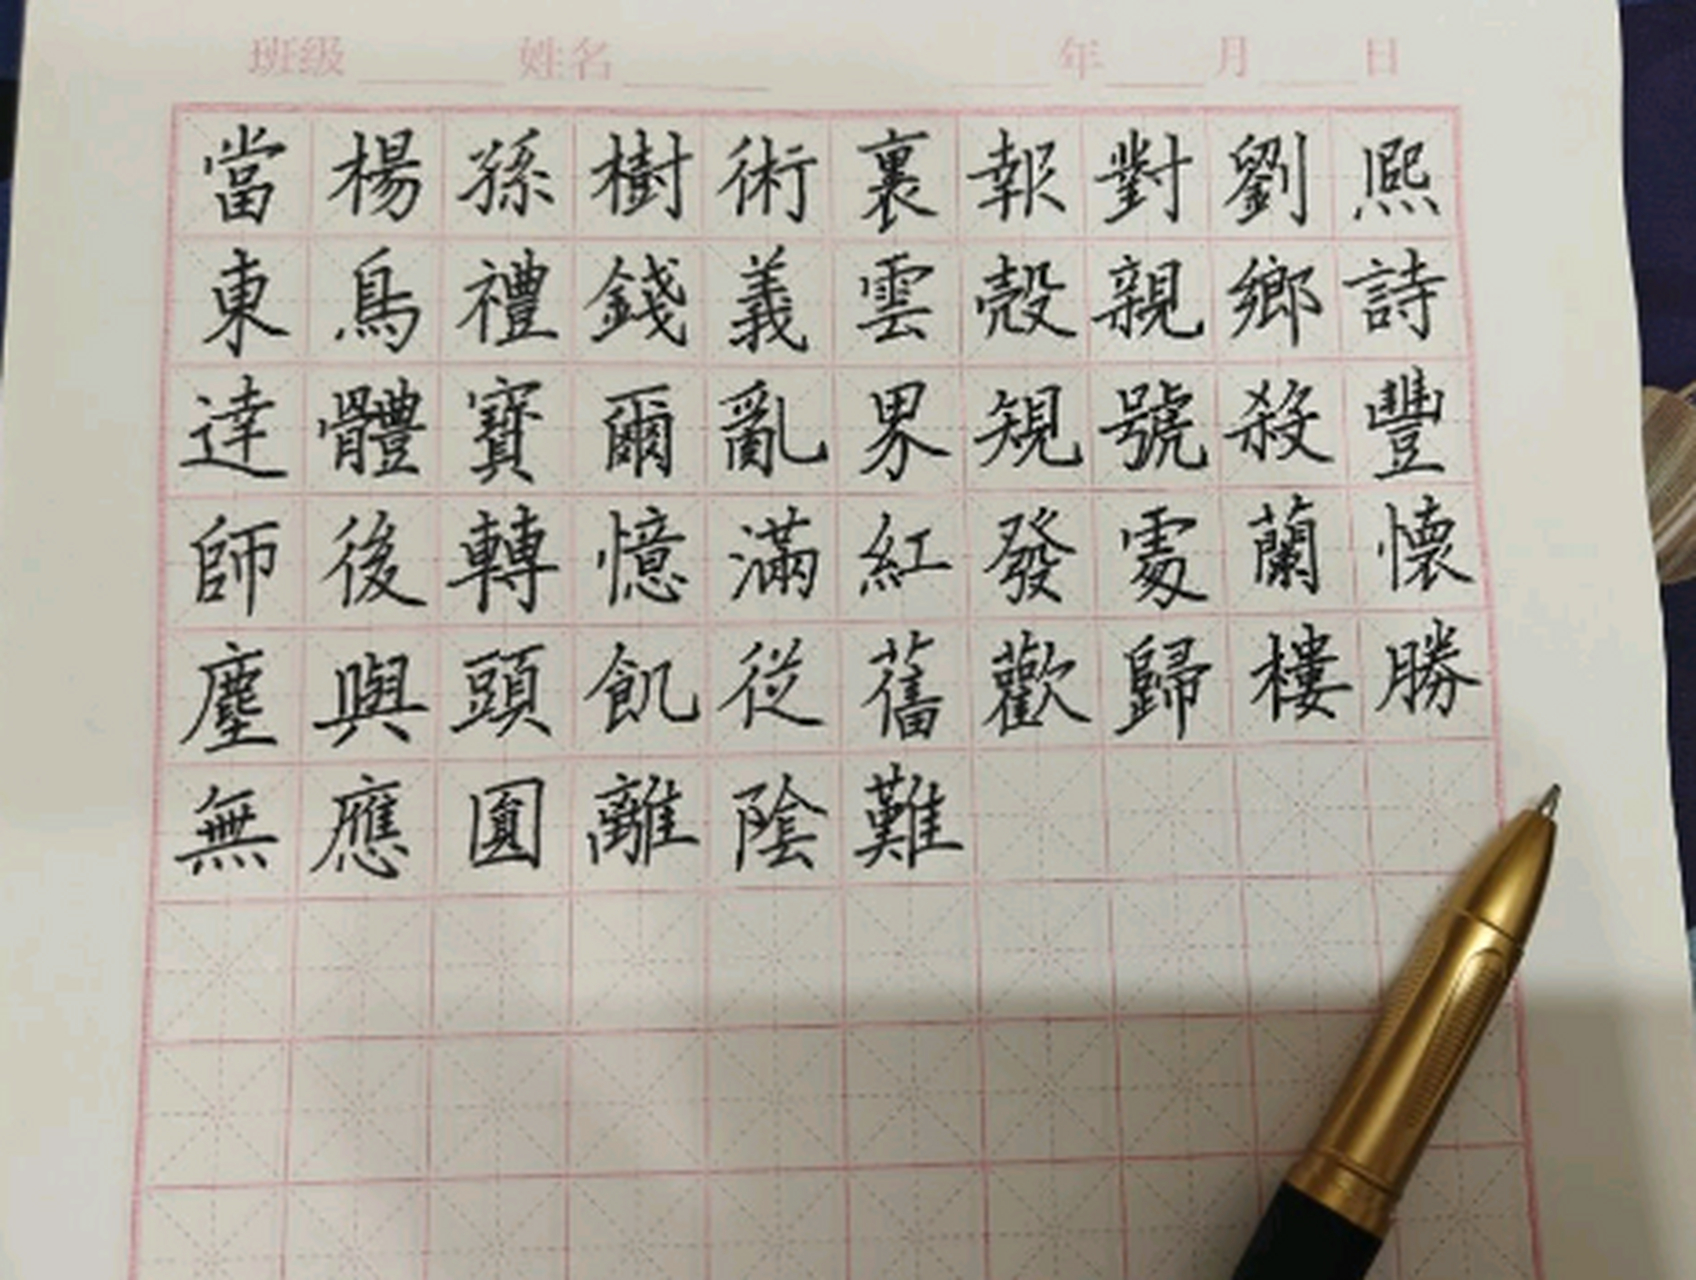 班级 姓名 年 月 日
當楊孫樹術裏報對劉熙
東鳥禮錢義雲殼親鄉詩
達體寶爾亂界規號殺豐
師後轉憶滿紅發處蘭懷
塵與頭飢從舊歡歸樓勝
無應圓離陰難